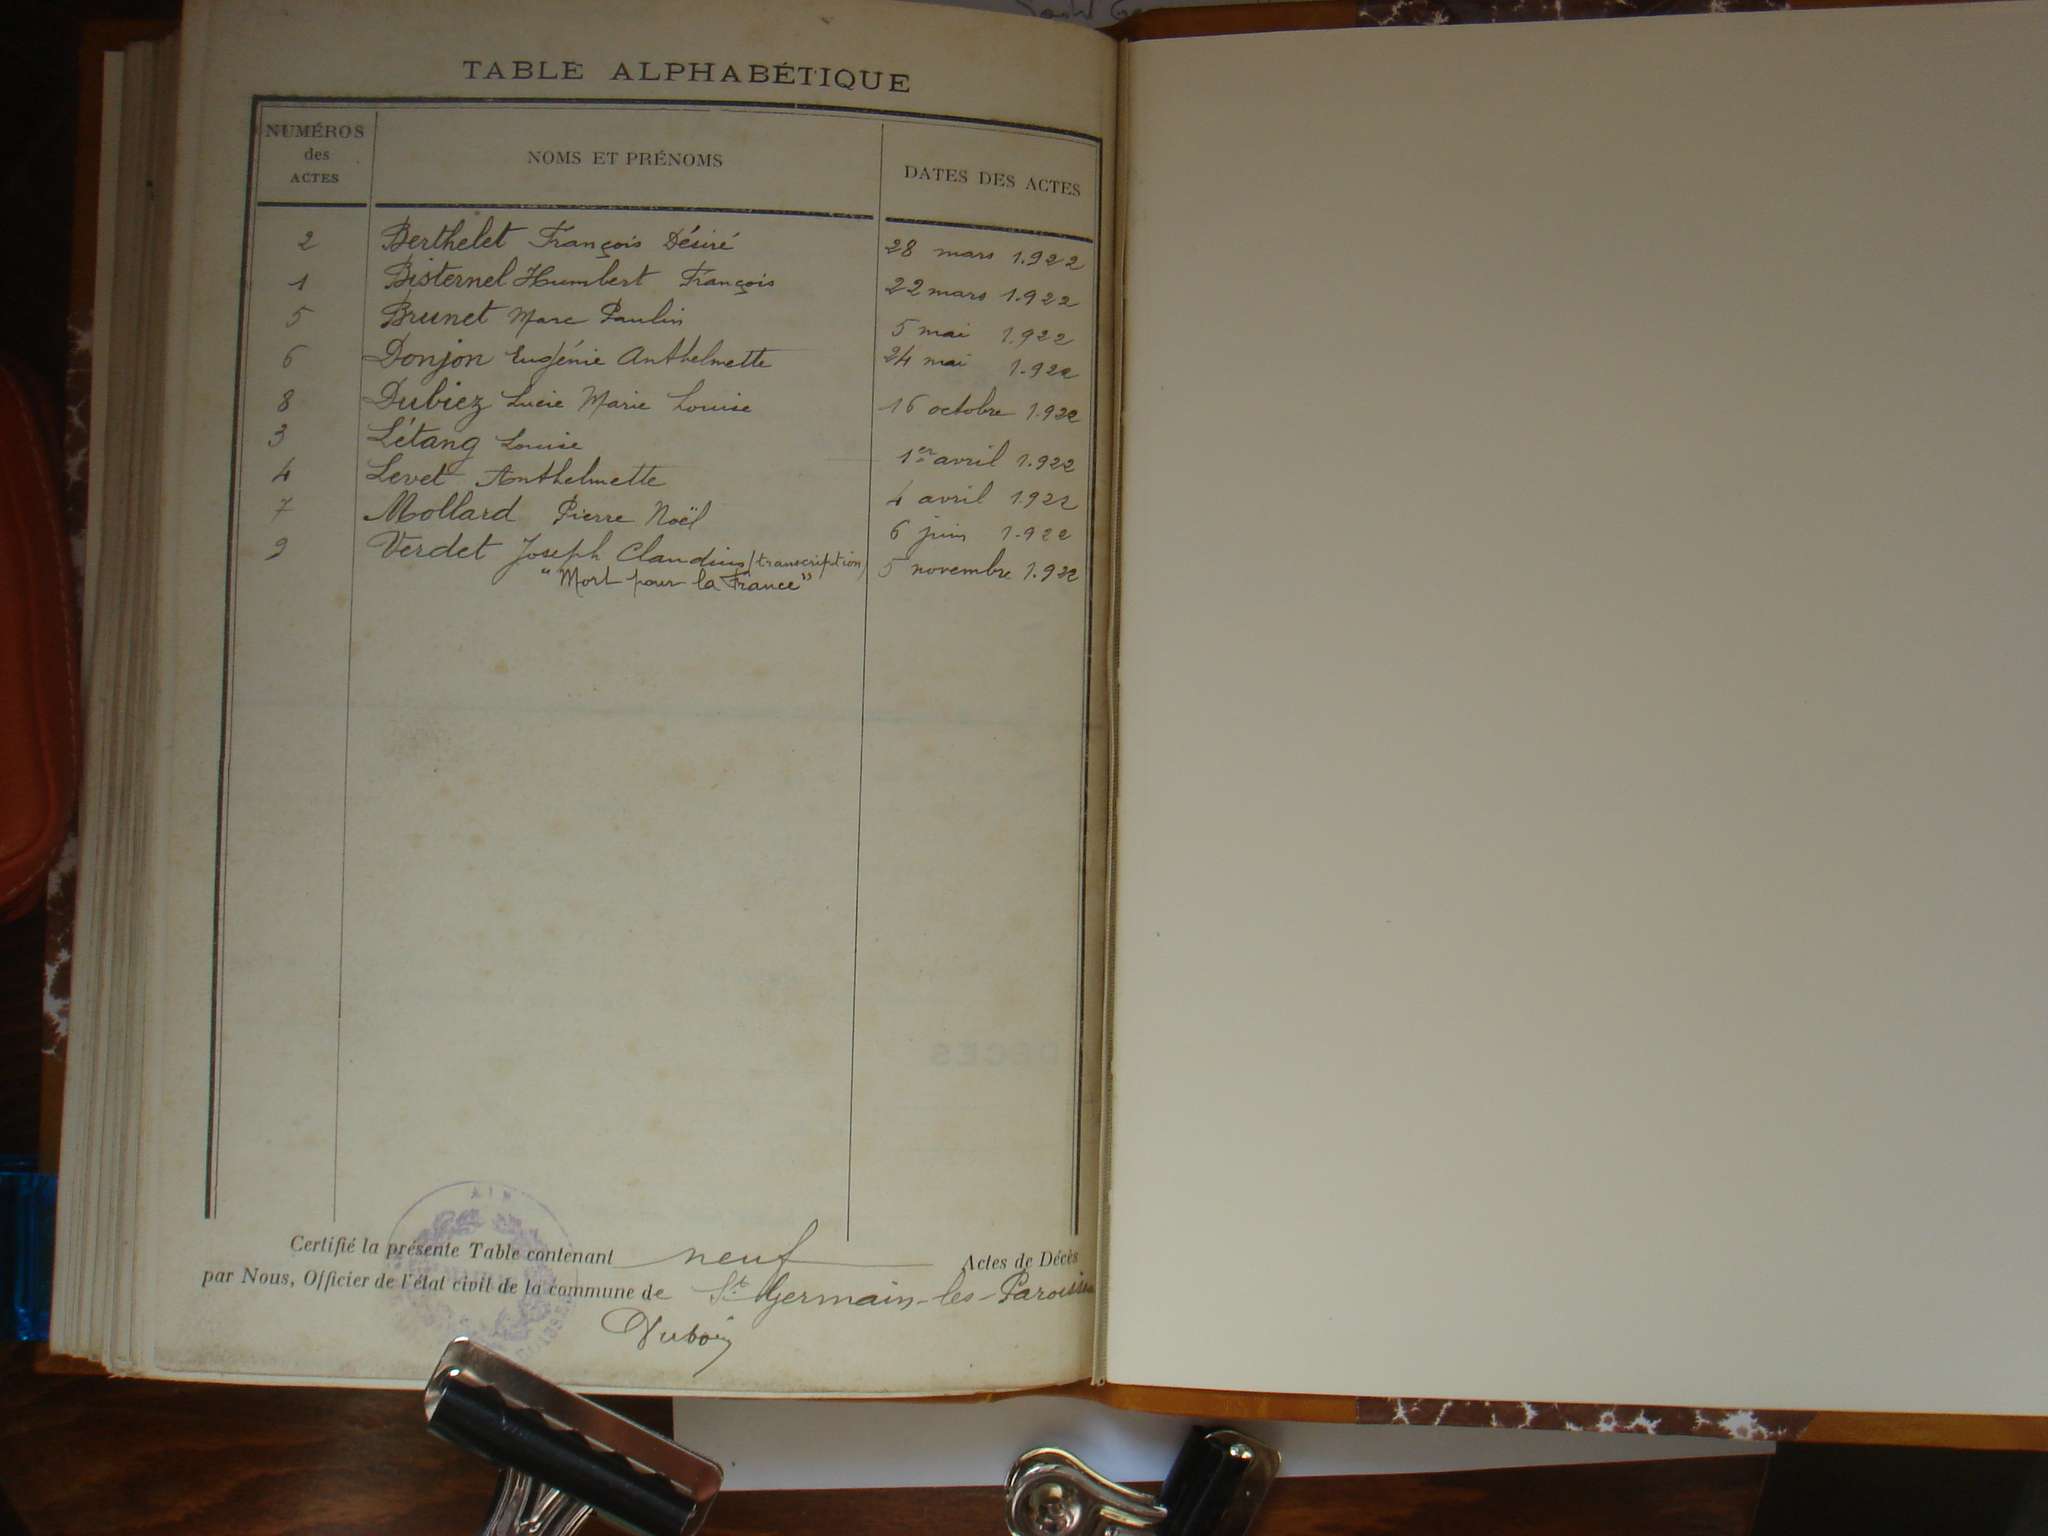 TABLE ALPHABÉTIQUE
NUMÉROS des ACTES
NOMS ET PRÉNOMS
DATES DES ACTES
2 Berthelet François Désiré 28 mars 1.922
1 Bisternel Humbert François 22 mars 1.922
5 Brunet Marc Paulin 5 mai 1.922
6 Donjon Eugénie Anthelmette 24 mai 1.922
8 Dubiez Lucie Marie Louise 16 octobre 1.922
3 Létang Louise 1er avril 1.922
4 Levet Anthelmette 4 avril 1922
7 Mollard Pierre Noël 6 juin 1.922
9 Verdet Joseph Claudius (transcription) 5 novembre 1.922
"Mort pour la France"
Certifié la présente Table contenant neuf Actes de Décès
par Nous, Officier de l'état civil de la commune de St Germain-les-Paroisses
Dubois
AIN